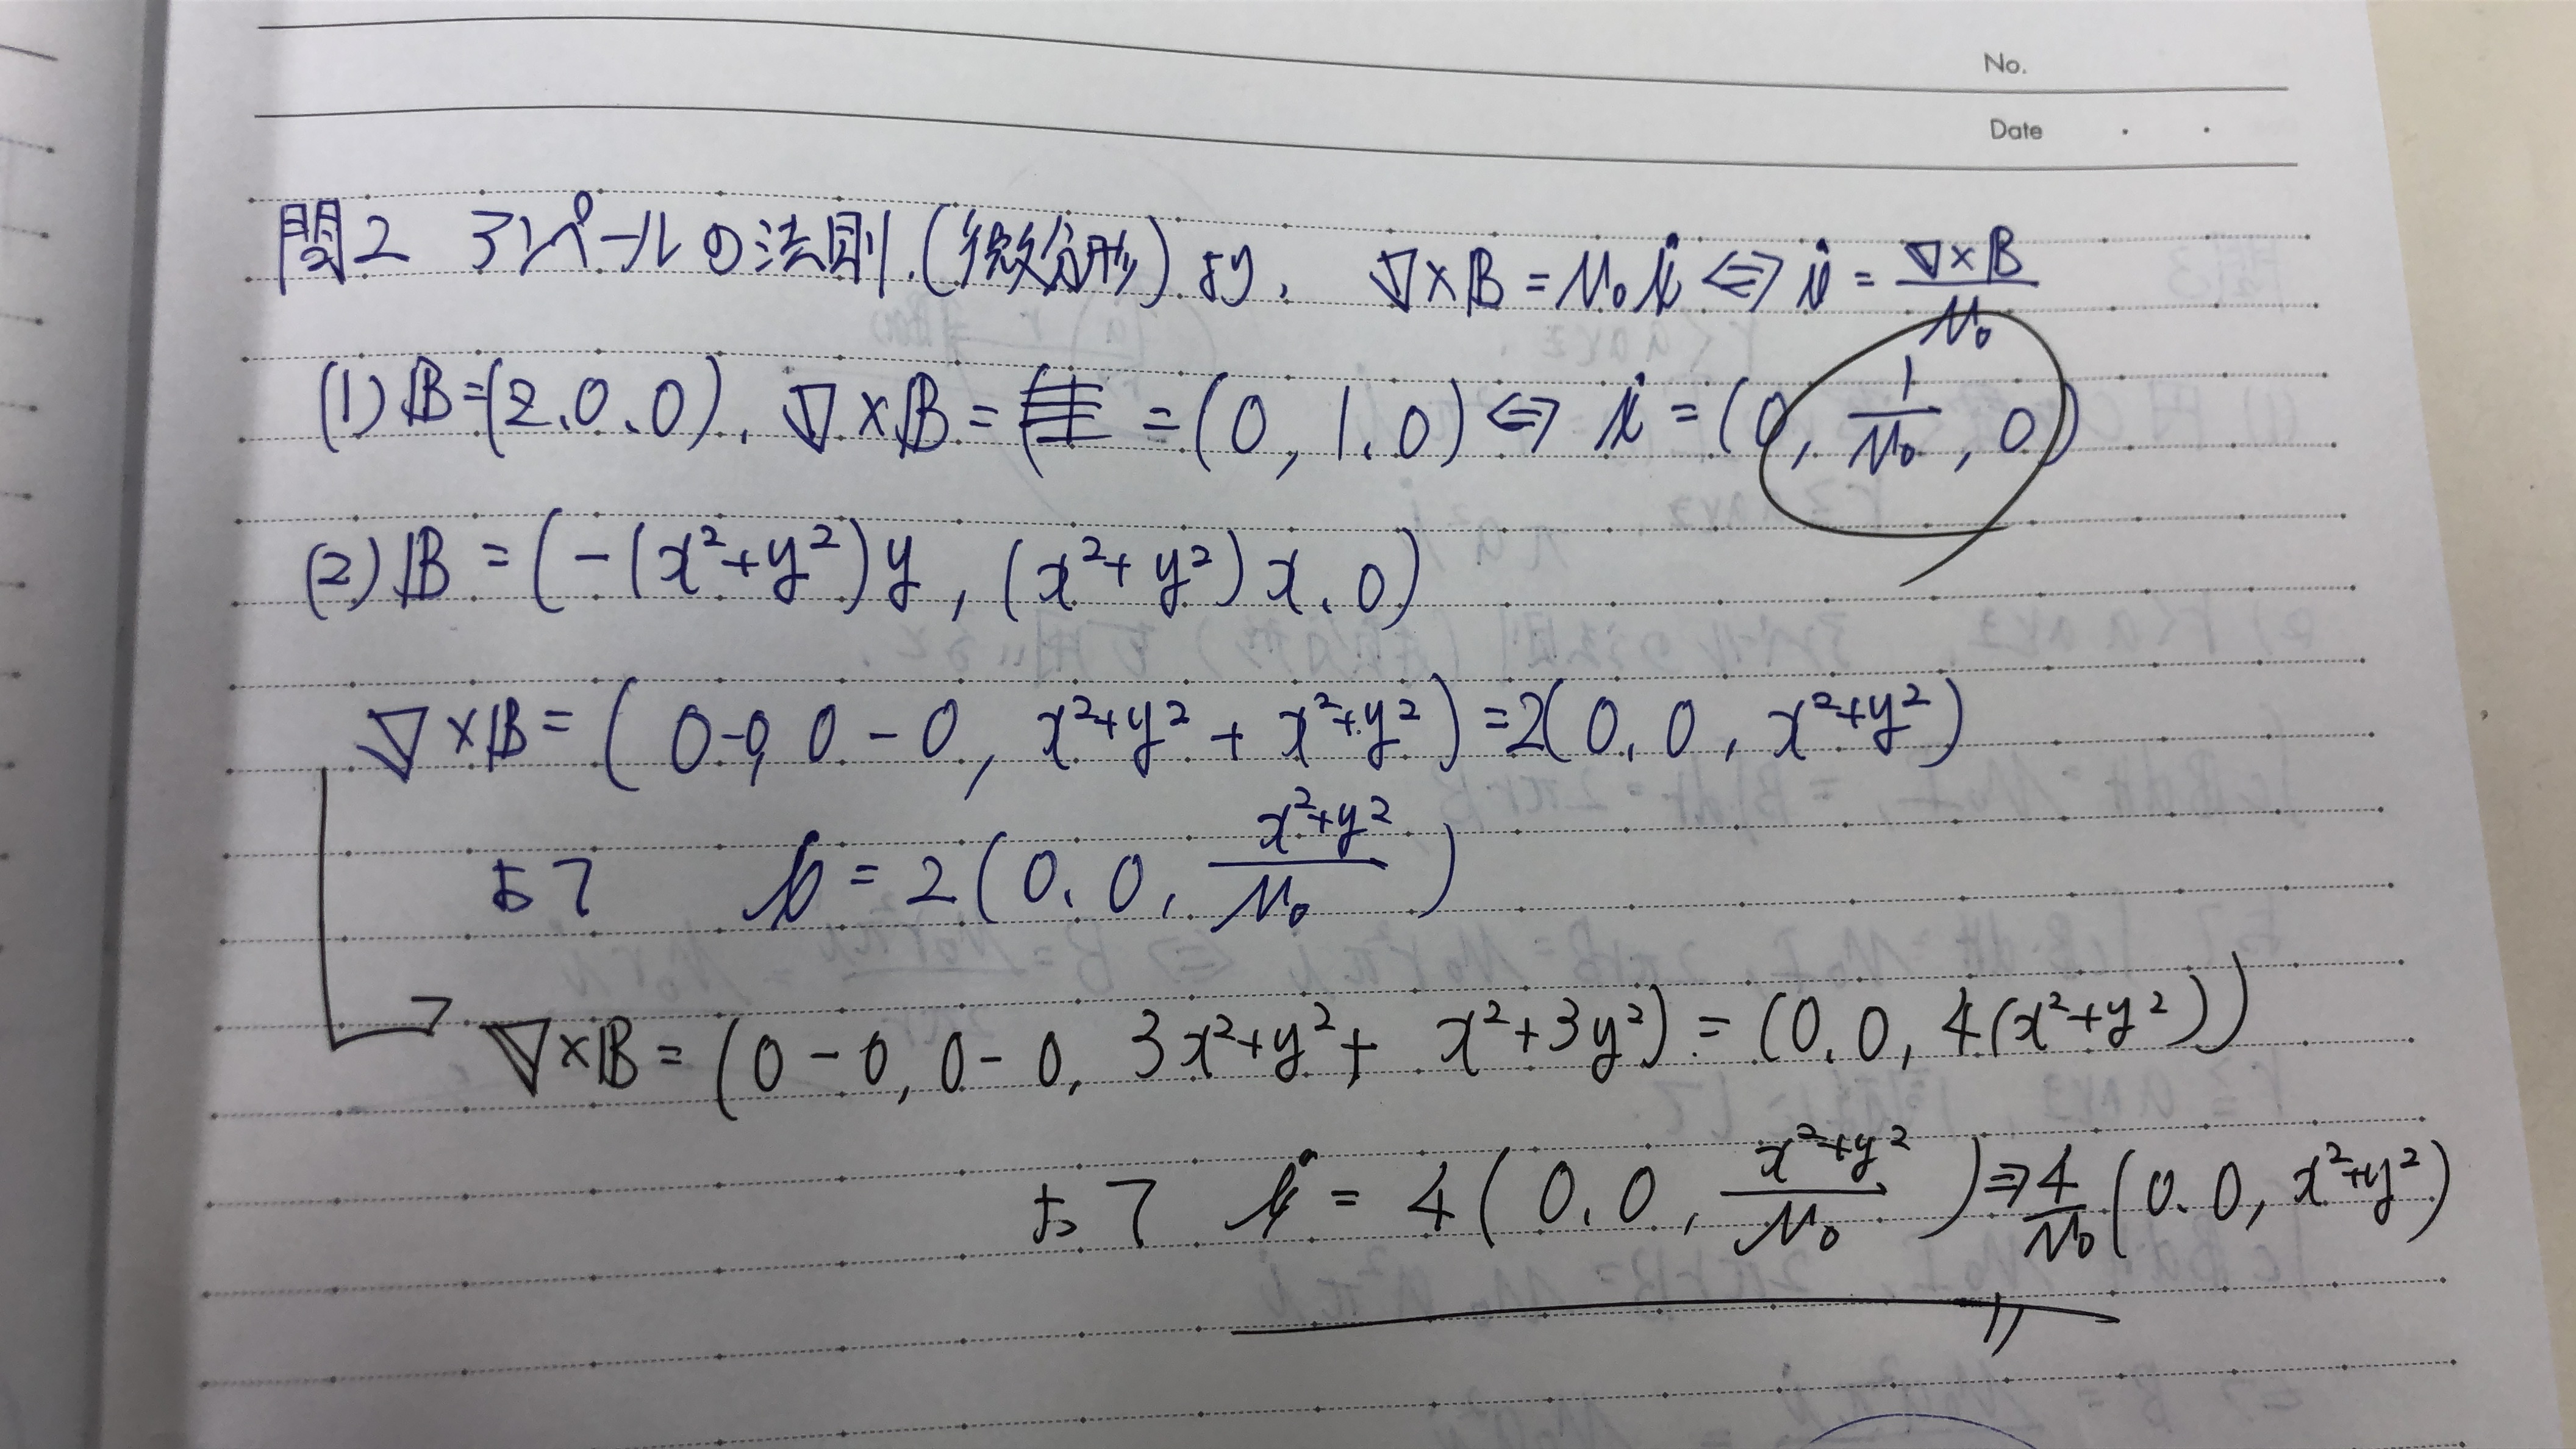 No.
Date
問2 アンペールの法則.(微分形)より, ∇×B = μ₀i ⇔ i = ∇×B/μ₀
(1) B=(z,0,0), ∇×B = = (0, 1, 0) ⇔ i = (0, 1/μ₀, 0)
(2) B = (-(x²+y²)y, (x²+y²)x, 0)
∇×B = (0-0, 0-0, x²+y² + x²+y²) = 2(0, 0, x²+y²)
よって i = 2(0, 0, x²+y²/μ₀)
∇×B = (0-0, 0-0, 3x²+y²+ x²+3y²) = (0, 0, 4(x²+y²))
よって i = 4(0, 0, x²+y²/μ₀) ⇒ 4/μ₀(0, 0, x²+y²)